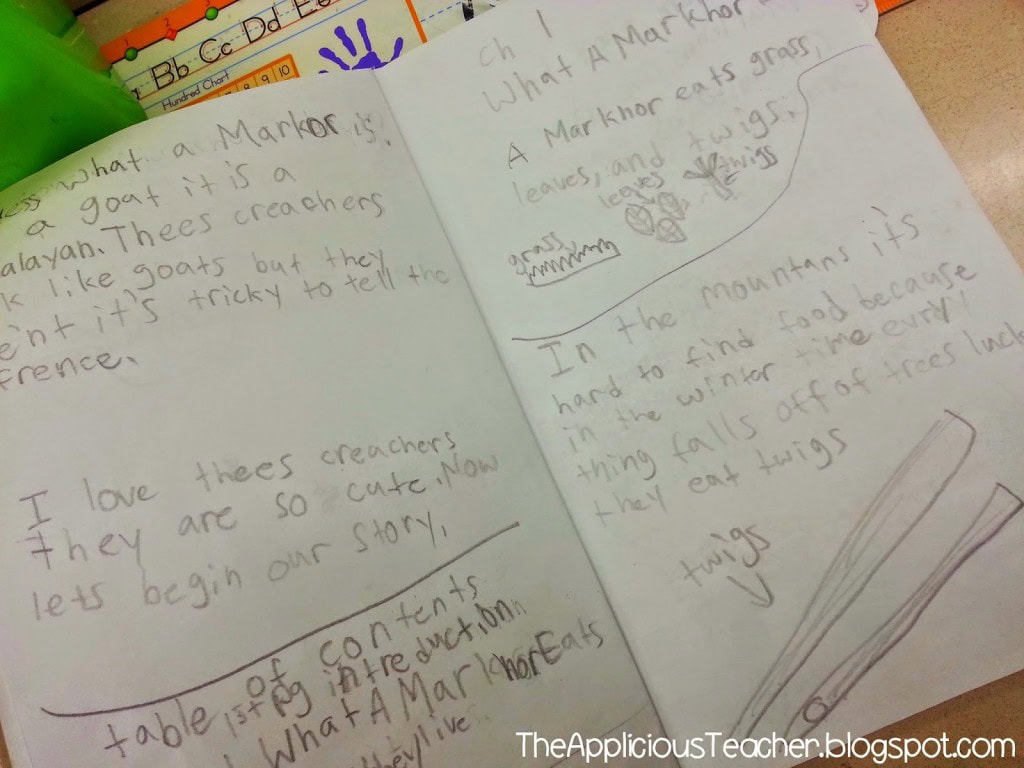 Bb Cc Dd Ee
Hundred Chart
8 9 10
what a Markor is.
a goat it is a
alayan. Thees creachers
k like goats but they
e'nt it's tricky to tell the
frence.
I love thees creachers
they are so cute. Now
lets begin our story.
table of contents
1st pg intreduction
What A Markhor Eats
they live
ch 1
What A Markhor
A Markhor eats grass,
leaves, and twigs.
leaves
twigs
grass
In the mountans it's
hard to find food because
in the winter time evry
thing falls off of trees luck
they eat twigs
twigs
TheAppliciousTeacher.blogspot.com